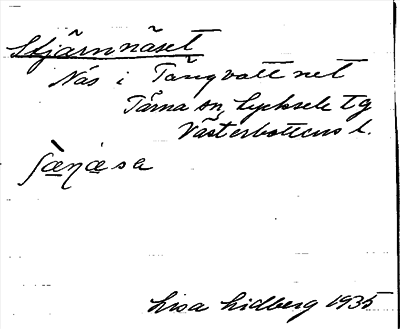 Stjärnnäset
Näs i Tängvattnet
Tärna sn, Lycksele tg
Västerbottens l.
Lisa Lidberg 1935